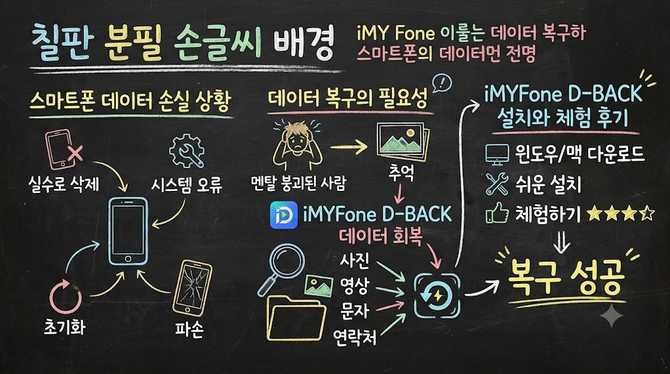 칠판 분필 손글씨 배경
iMY Fone 이룰는 데이터 복구하
스마트폰의 데이터먼 전명
스마트폰 데이터 손실 상황
실수로 삭제
시스템 오류
초기화
파손
데이터 복구의 필요성
멘탈 붕괴된 사람
추억
iMYFone D-BACK
데이터 회복
사진
영상
문자
연락처
iMYFone D-BACK
설치와 체험 후기
윈도우/맥 다운로드
쉬운 설치
체험하기
복구 성공